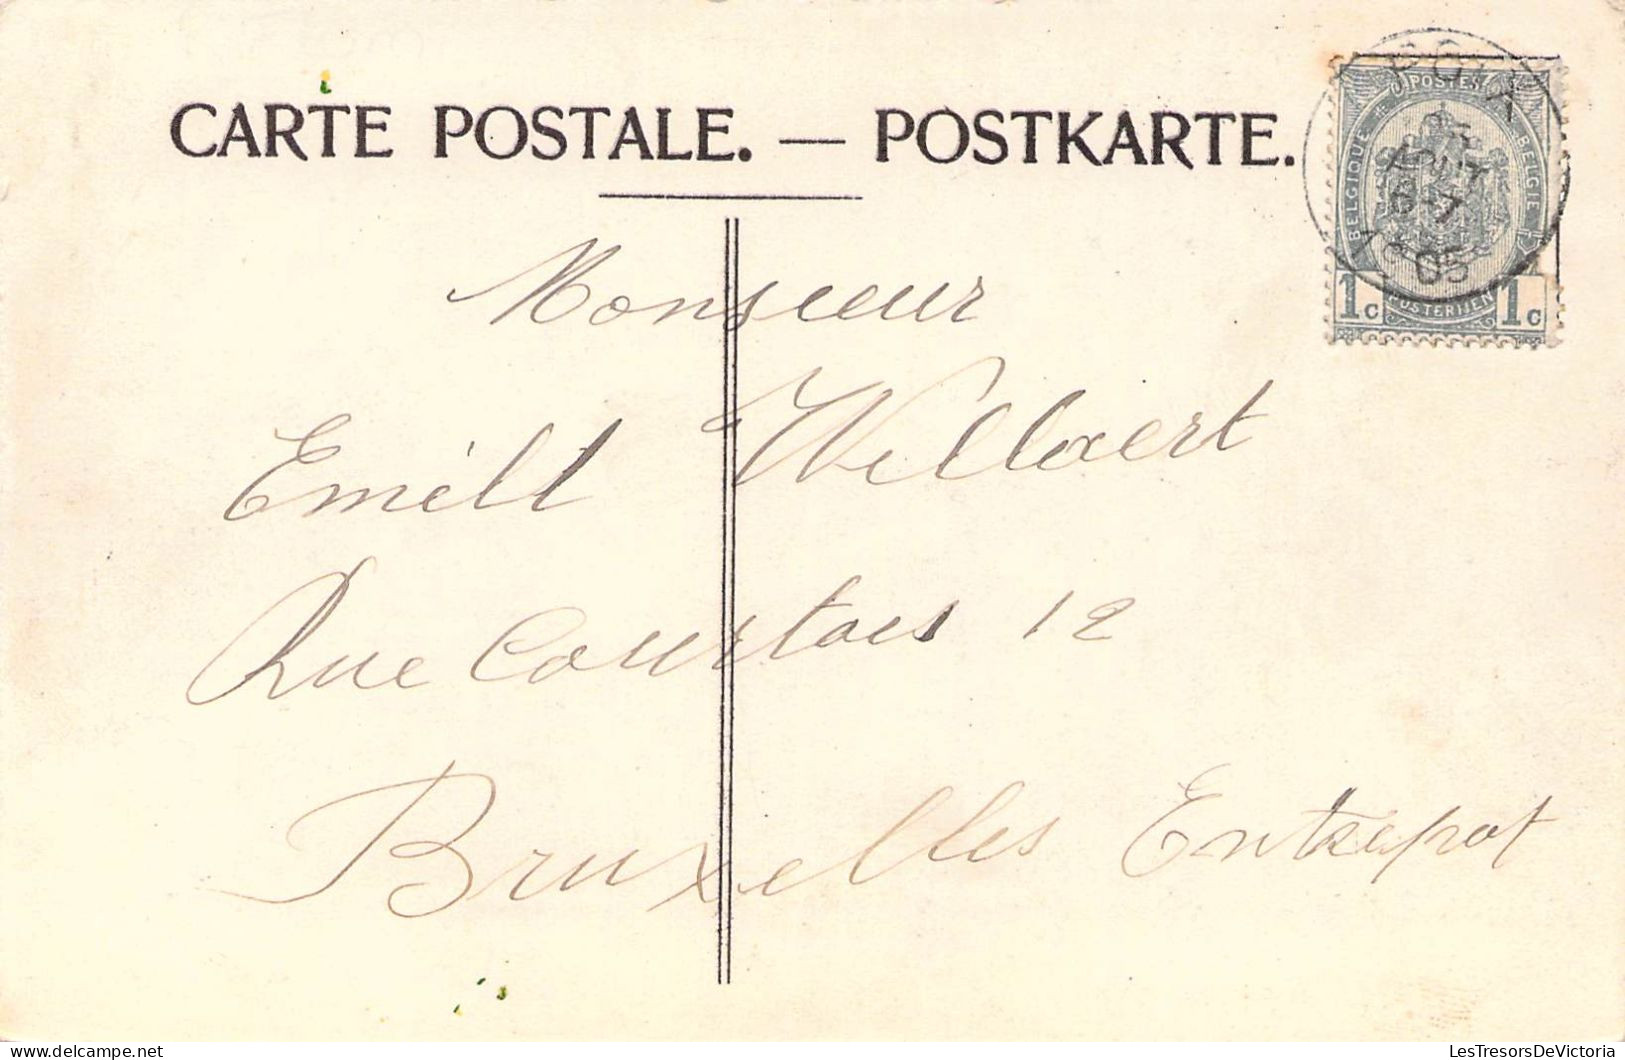 CARTE POSTALE. — POSTKARTE.
POSTES
BELGIQUE
BELGIE
AOUT
6-7
1905
1c POSTERIJEN 1c
Monsieur
Emill Willaert
Rue Courtois 12
Bruxelles Entrepot
LesTresorsDeVictoria